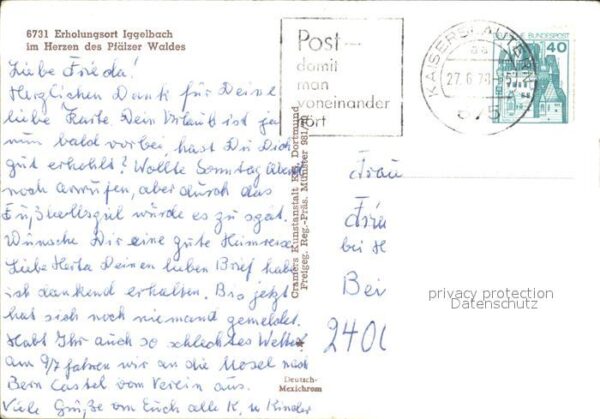 6731 Erholungsort Iggelbach
im Herzen des Pfälzer Waldes
Liebe Frieda!
Herzlichen Dank für Deine
liebe Karte Dein Urlaub ist ja
nun bald vorbei, hast Du Dich
gut erhohlt? Wollte Sonntag Abend
noch anrufen, aber durch das
Fußballspiel würde es zu spät.
Wünsche Dir eine gute Heimreise
Liebe Herta Deinen lieben Brief habe
ich dankend erhalten. Bis jetzt
hat sich noch niemand gemeldet.
Habt Ihr auch so schlechtes Wetter?
am 9/7 fahren wir an die Mosel nach
Bern Castel vom Verein aus.
Viele Grüße von Euch alle K. u Kinder
Cramers Kunstanstalt KG, Dortmund
Freigeg. Reg.-Präs. Münster 981/
Deutsch-
Mexichrom
Post-
damit
man
voneinander
hört
KAISERSLAUTERN
27.6.78
675
BUNDESPOST
40
Frau
bei H
240
privacy protection
Datenschutz